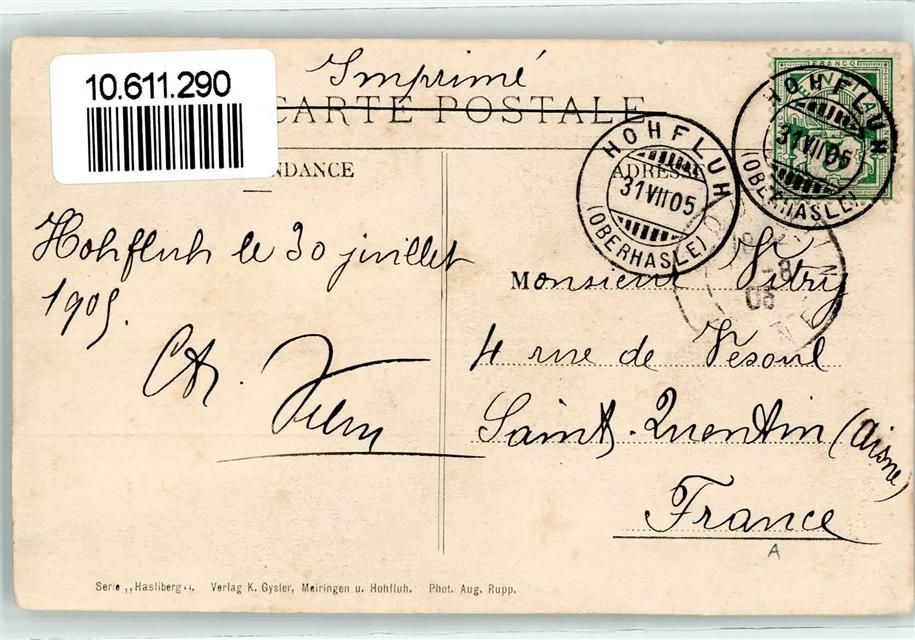 10.611.290
Imprimé
CARTE POSTALE
NDANCE
ADRESSE
HOHFLUH
31 VII 05
(OBERHASLE)
HOHFLUH
31 VII 05
(OBERHASLE)
FRANCO
Hohfluh le 30 juillet
1905.
Ch.
Monsieur Vitry
4 rue de Vesoul
Saint-Quentin (Aisne)
France
A
Serie „Hasliberg“. Verlag K. Gysler, Meiringen u. Hohfluh. Phot. Aug. Rupp.